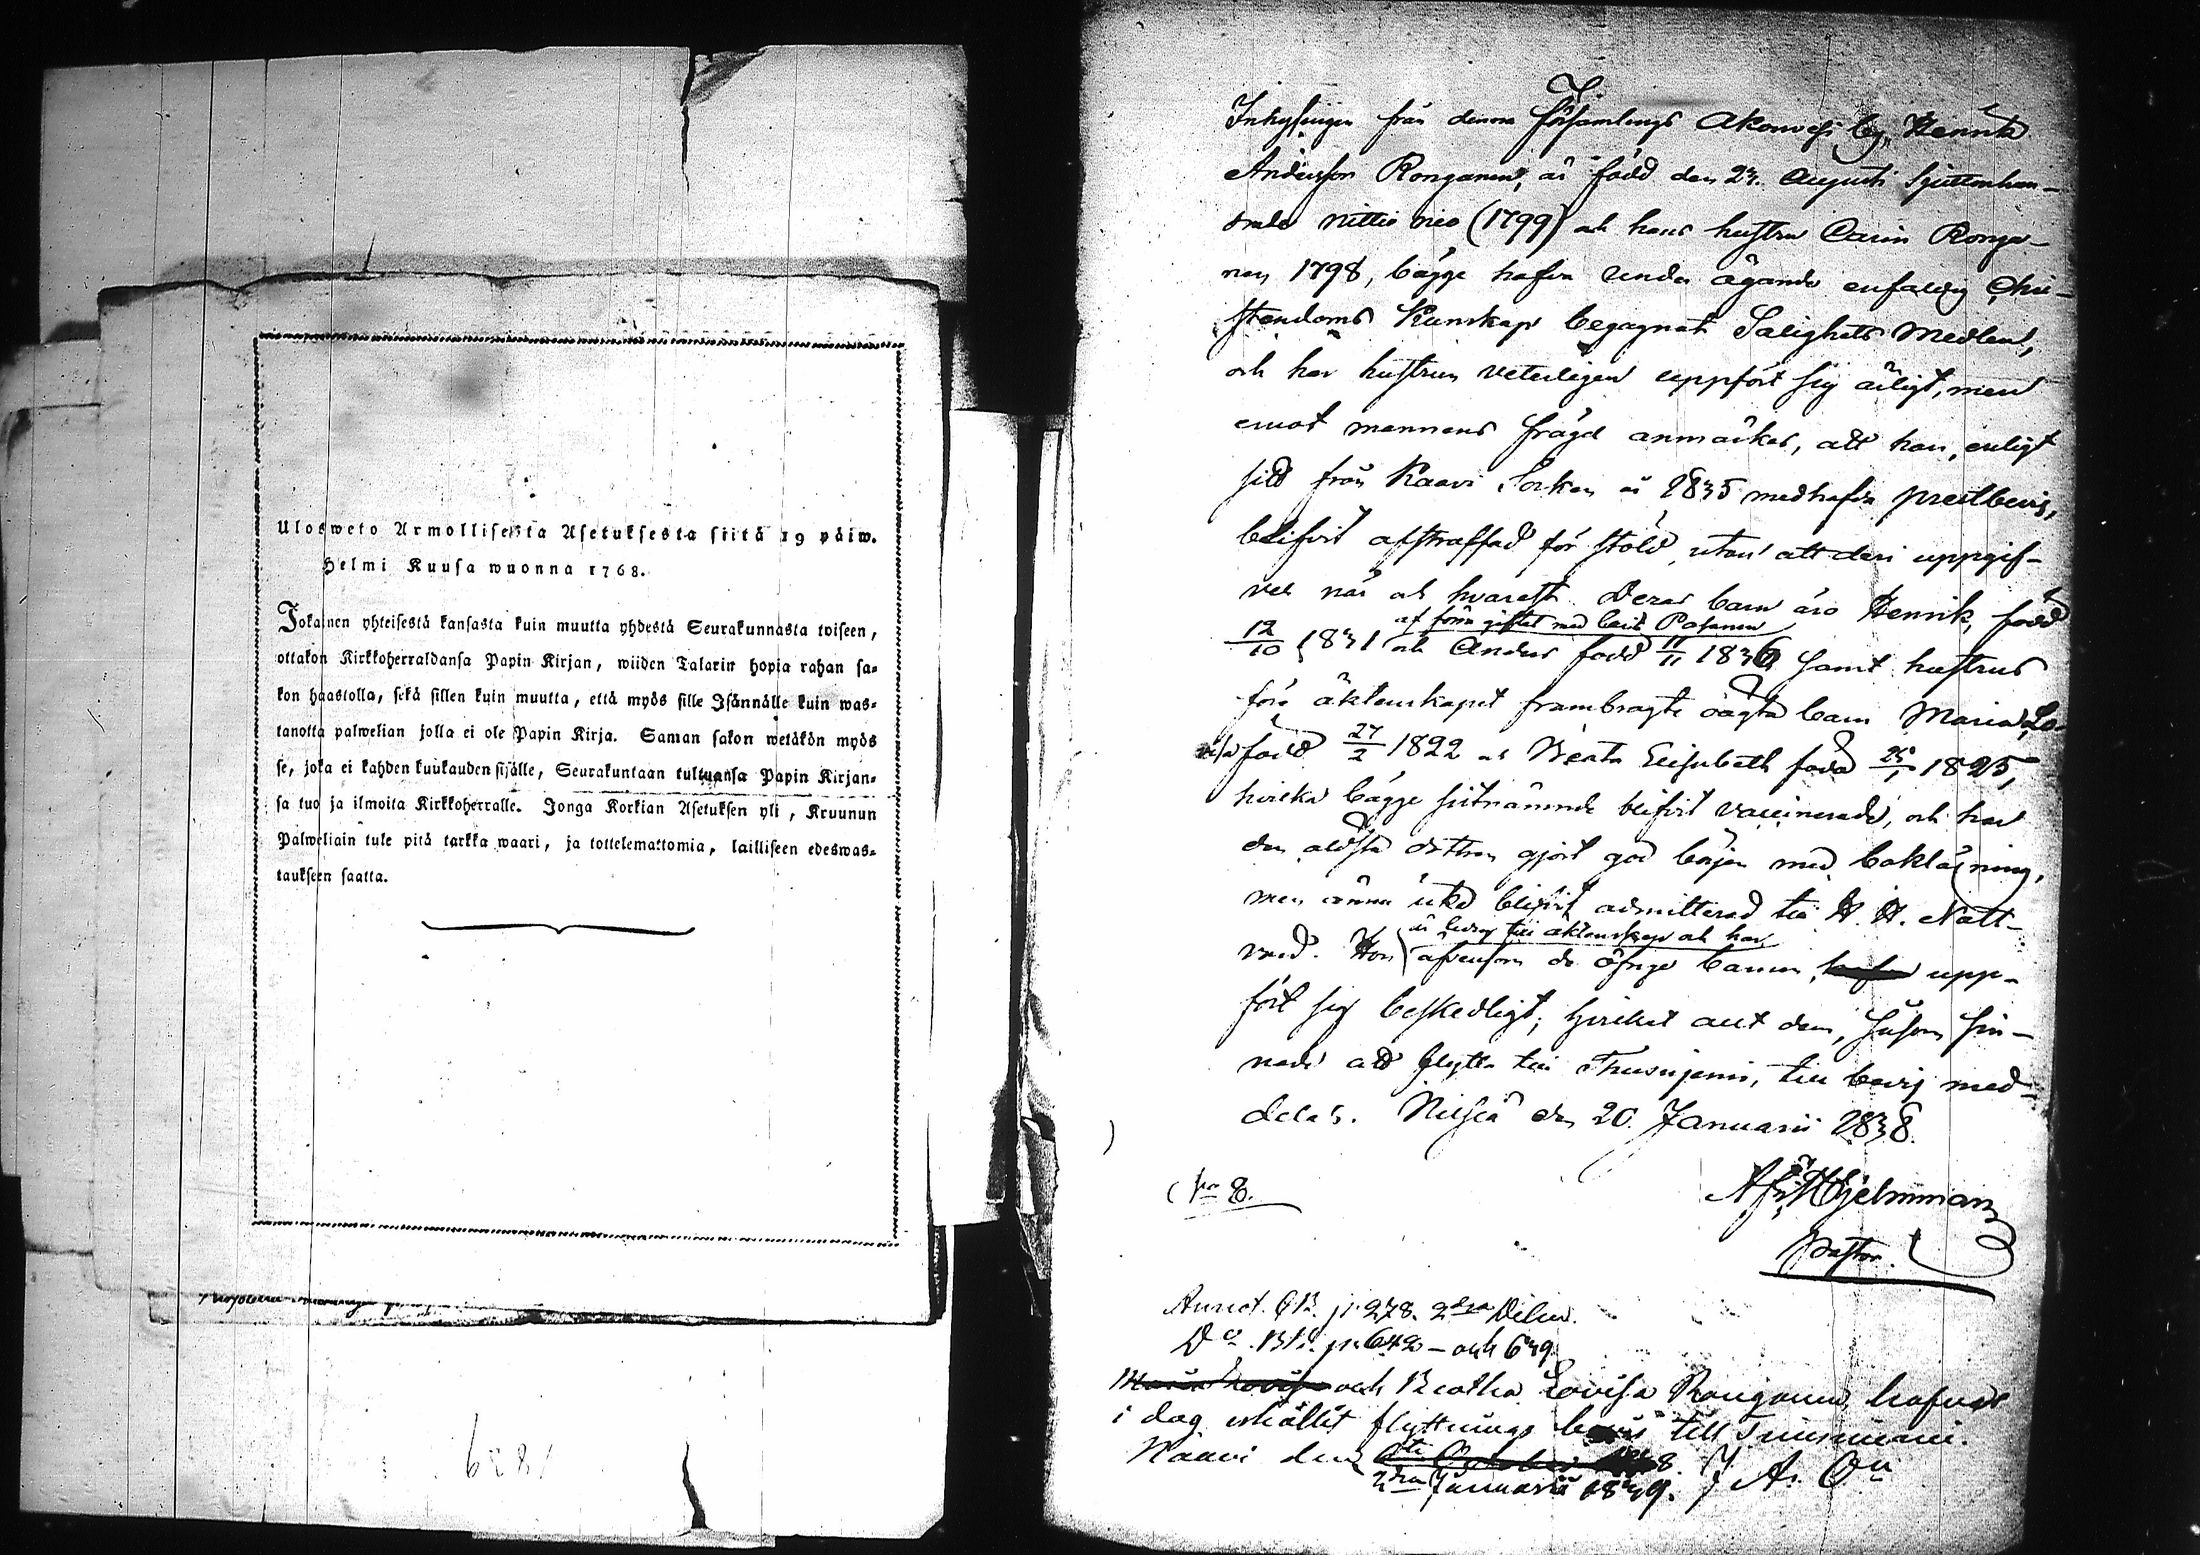 Ulosweto Armollisesta Asetuksesta siitä 19 päiw.
Helmi Kuusa wuonna 1768.
Jokainen yhteisestä kansasta kuin muutta yhdestä Seurakunnasta toiseen,
ottakon Kirkkoherraldansa Papin Kirjan, wiiden Talarin hopia rahan sa-
kon haastolla, sekä sillen kuin muutta, että myös sille Isännälle kuin was-
tanotta palwelian jolla ei ole Papin Kirja. Saman sakon wetäkön myös
se, joka ei kahden kuukauden sisälle, Seurakuntaan tultuansa Papin Kirjan-
sa tuo ja ilmoita Kirkkoherralle. Jonga Korkian Asetuksen yli, Kruunun
Palweliain tule pitä tarkka waari, ja tottelemattomia, lailliseen edeswas-
taukseen saatta.
1839
Inhysingen från denna Församlings Akonvesi by, Henrik
Andersson Ronganen, är född den 23. Augusti Sjuttonhun-
drade nittio nio (1799) och hans hustru Carin Ronga-
nen 1798, bägge hafva under ägande enfaldig Chri-
stendoms Kunskap begagnat Salighets Medlen,
och har hustrun veterligen uppfört sig ärligt, men
emot mannens frägd anmärkes, att han, enligt
sitt från Kaavi Socken år 1835 medhafda prestbevis,
blifvit afstraffad för stöld, utan att deri uppgif-
ves när och hvarest. Deras barn äro Henrik, född
af förra giftet med Carin Pasanen
12/10 1831 och Anders född 11/11 1836 samt hustrus
före äktenskapet frambragte oägta barn Maria Lo-
visa född 27/2 1822 och Beata Elisabeth född 25/1 1825,
hvilka bägge sistnämnde blifvit vaccinerade, och har
den äldsta dottren gjort god början med bokläsning,
men ännu icke blifvit admitterad till H. H. Natt-
är ledig till äktenskap och har
vard. Hon äfvensom de öfrige barnen upp-
fört sig beskedligt; hvilket allt dem, såsom sin-
nade att flytta till Tuusnjemi, till bevis med-
delas. Nilsiä den 20. Januarii 1838.
No 8.
A. Fr. Hjelmman
Pastor.
Annot. CB. p. 278. 2dra Delen.
Do. BB. p. 642 - och 639
Maria Lovisa och Beatha Lovisa Ronganen hafver
i dag erhållit flyttnings bevis till Tuusniemi.
Kaavi den 6te October 8.
2dra Januarii 1839. J A. On